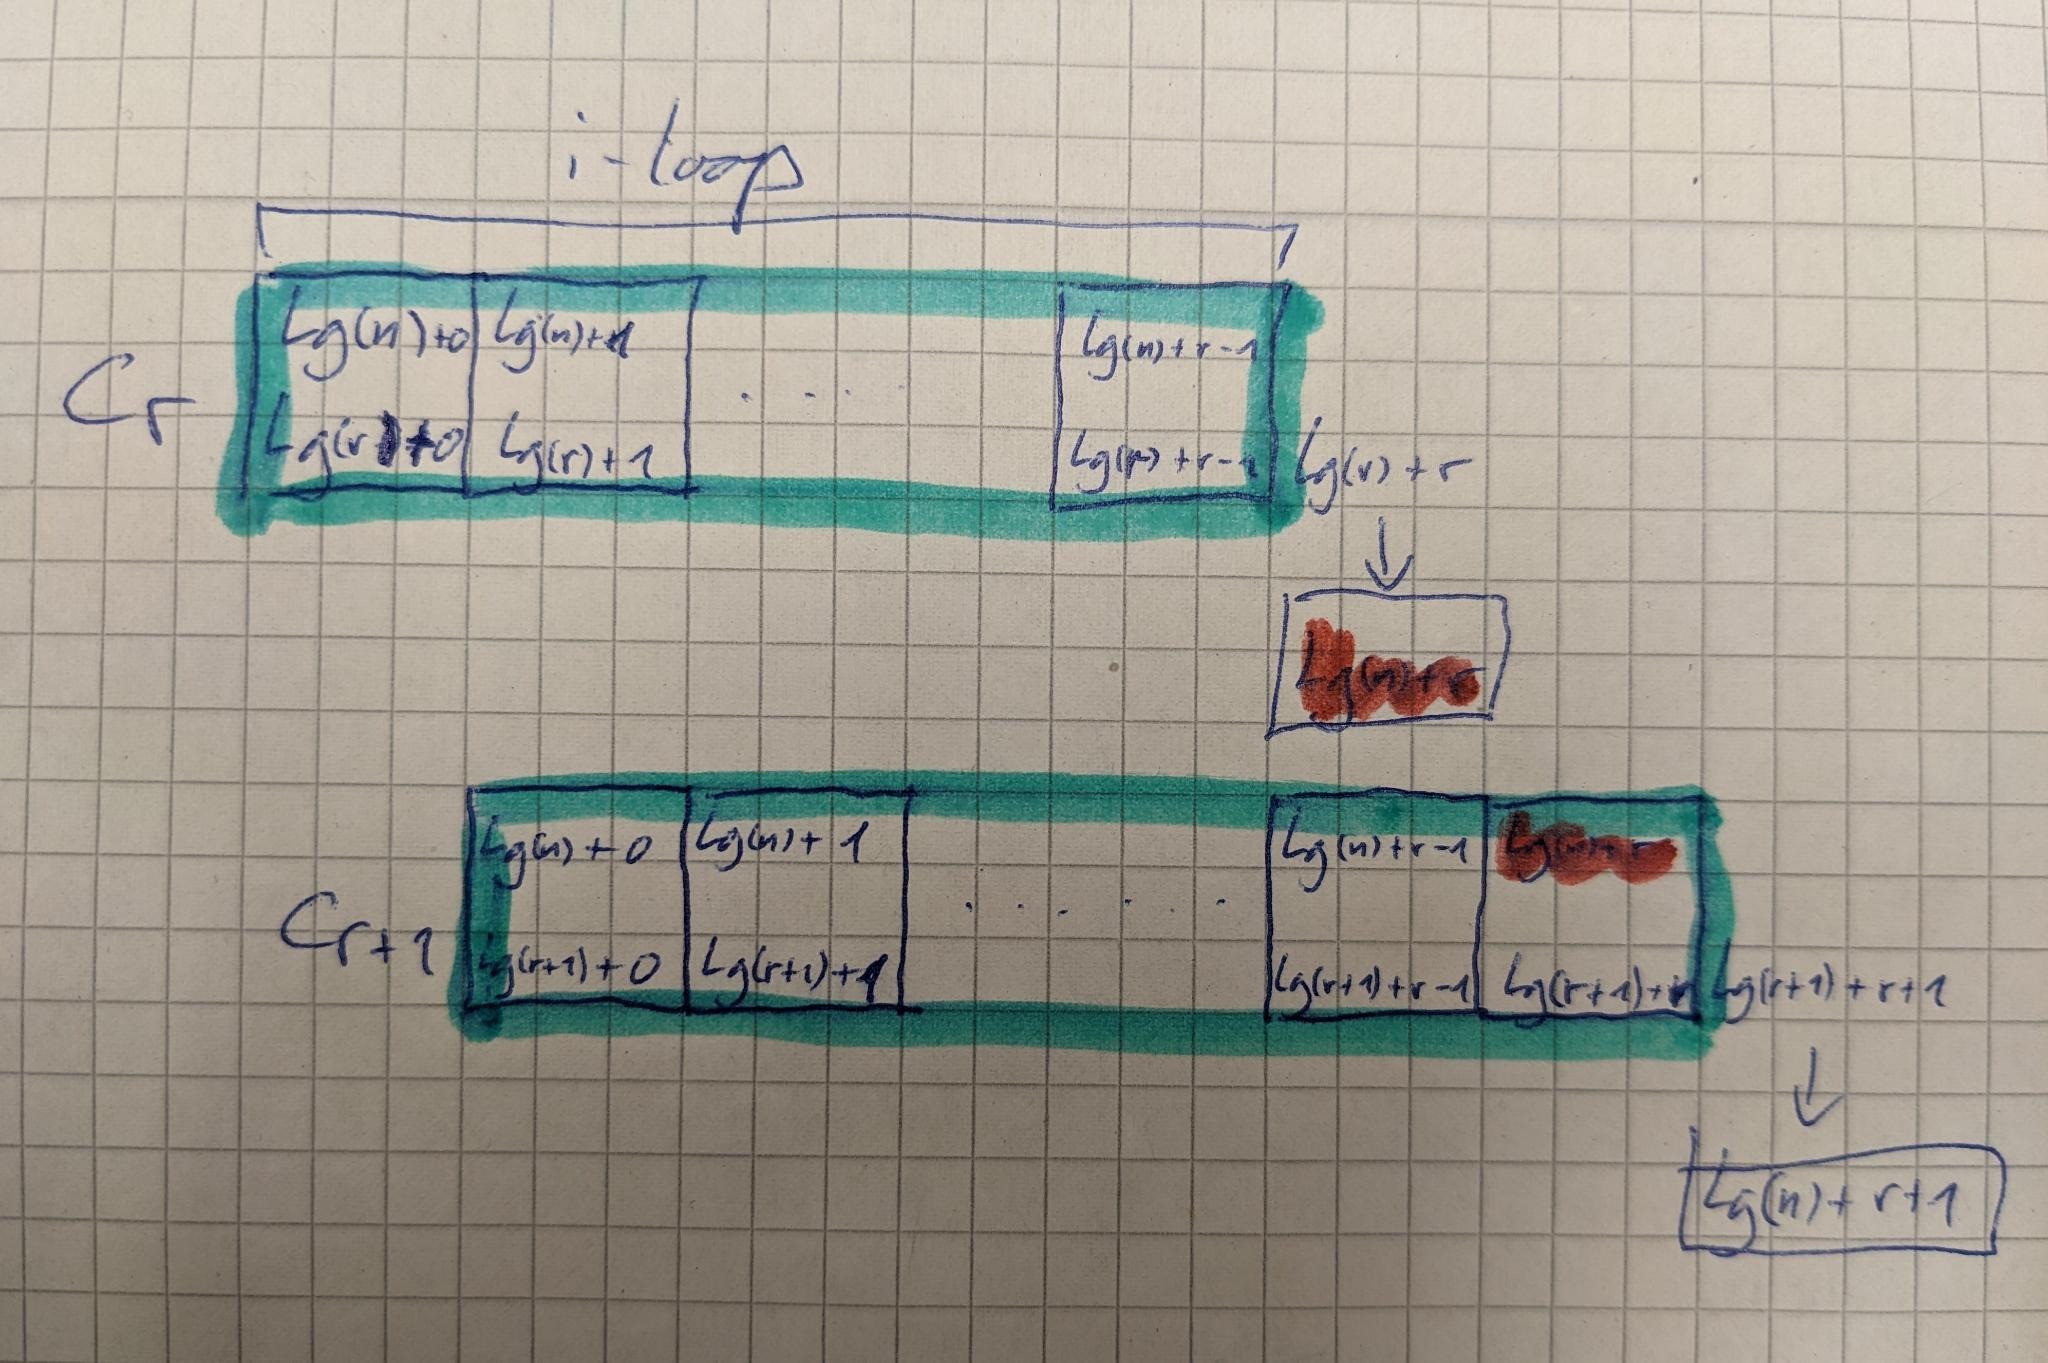 i-loop
Lg(n)+0 Lg(n)+1 Lg(n)+r-1
Cr . . . .
Lg(r)+0 Lg(r)+1 Lg(r)+r-1 Lg(r)+r
↓
Lg(n)+r
Lg(n)+0 Lg(n)+1 Lg(n)+r-1 Lg(n)+r
Cr+1 . . . . . .
Lg(r+1)+0 Lg(r+1)+1 Lg(r+1)+r-1 Lg(r+1)+r Lg(r+1)+r+1
↓
Lg(n)+r+1